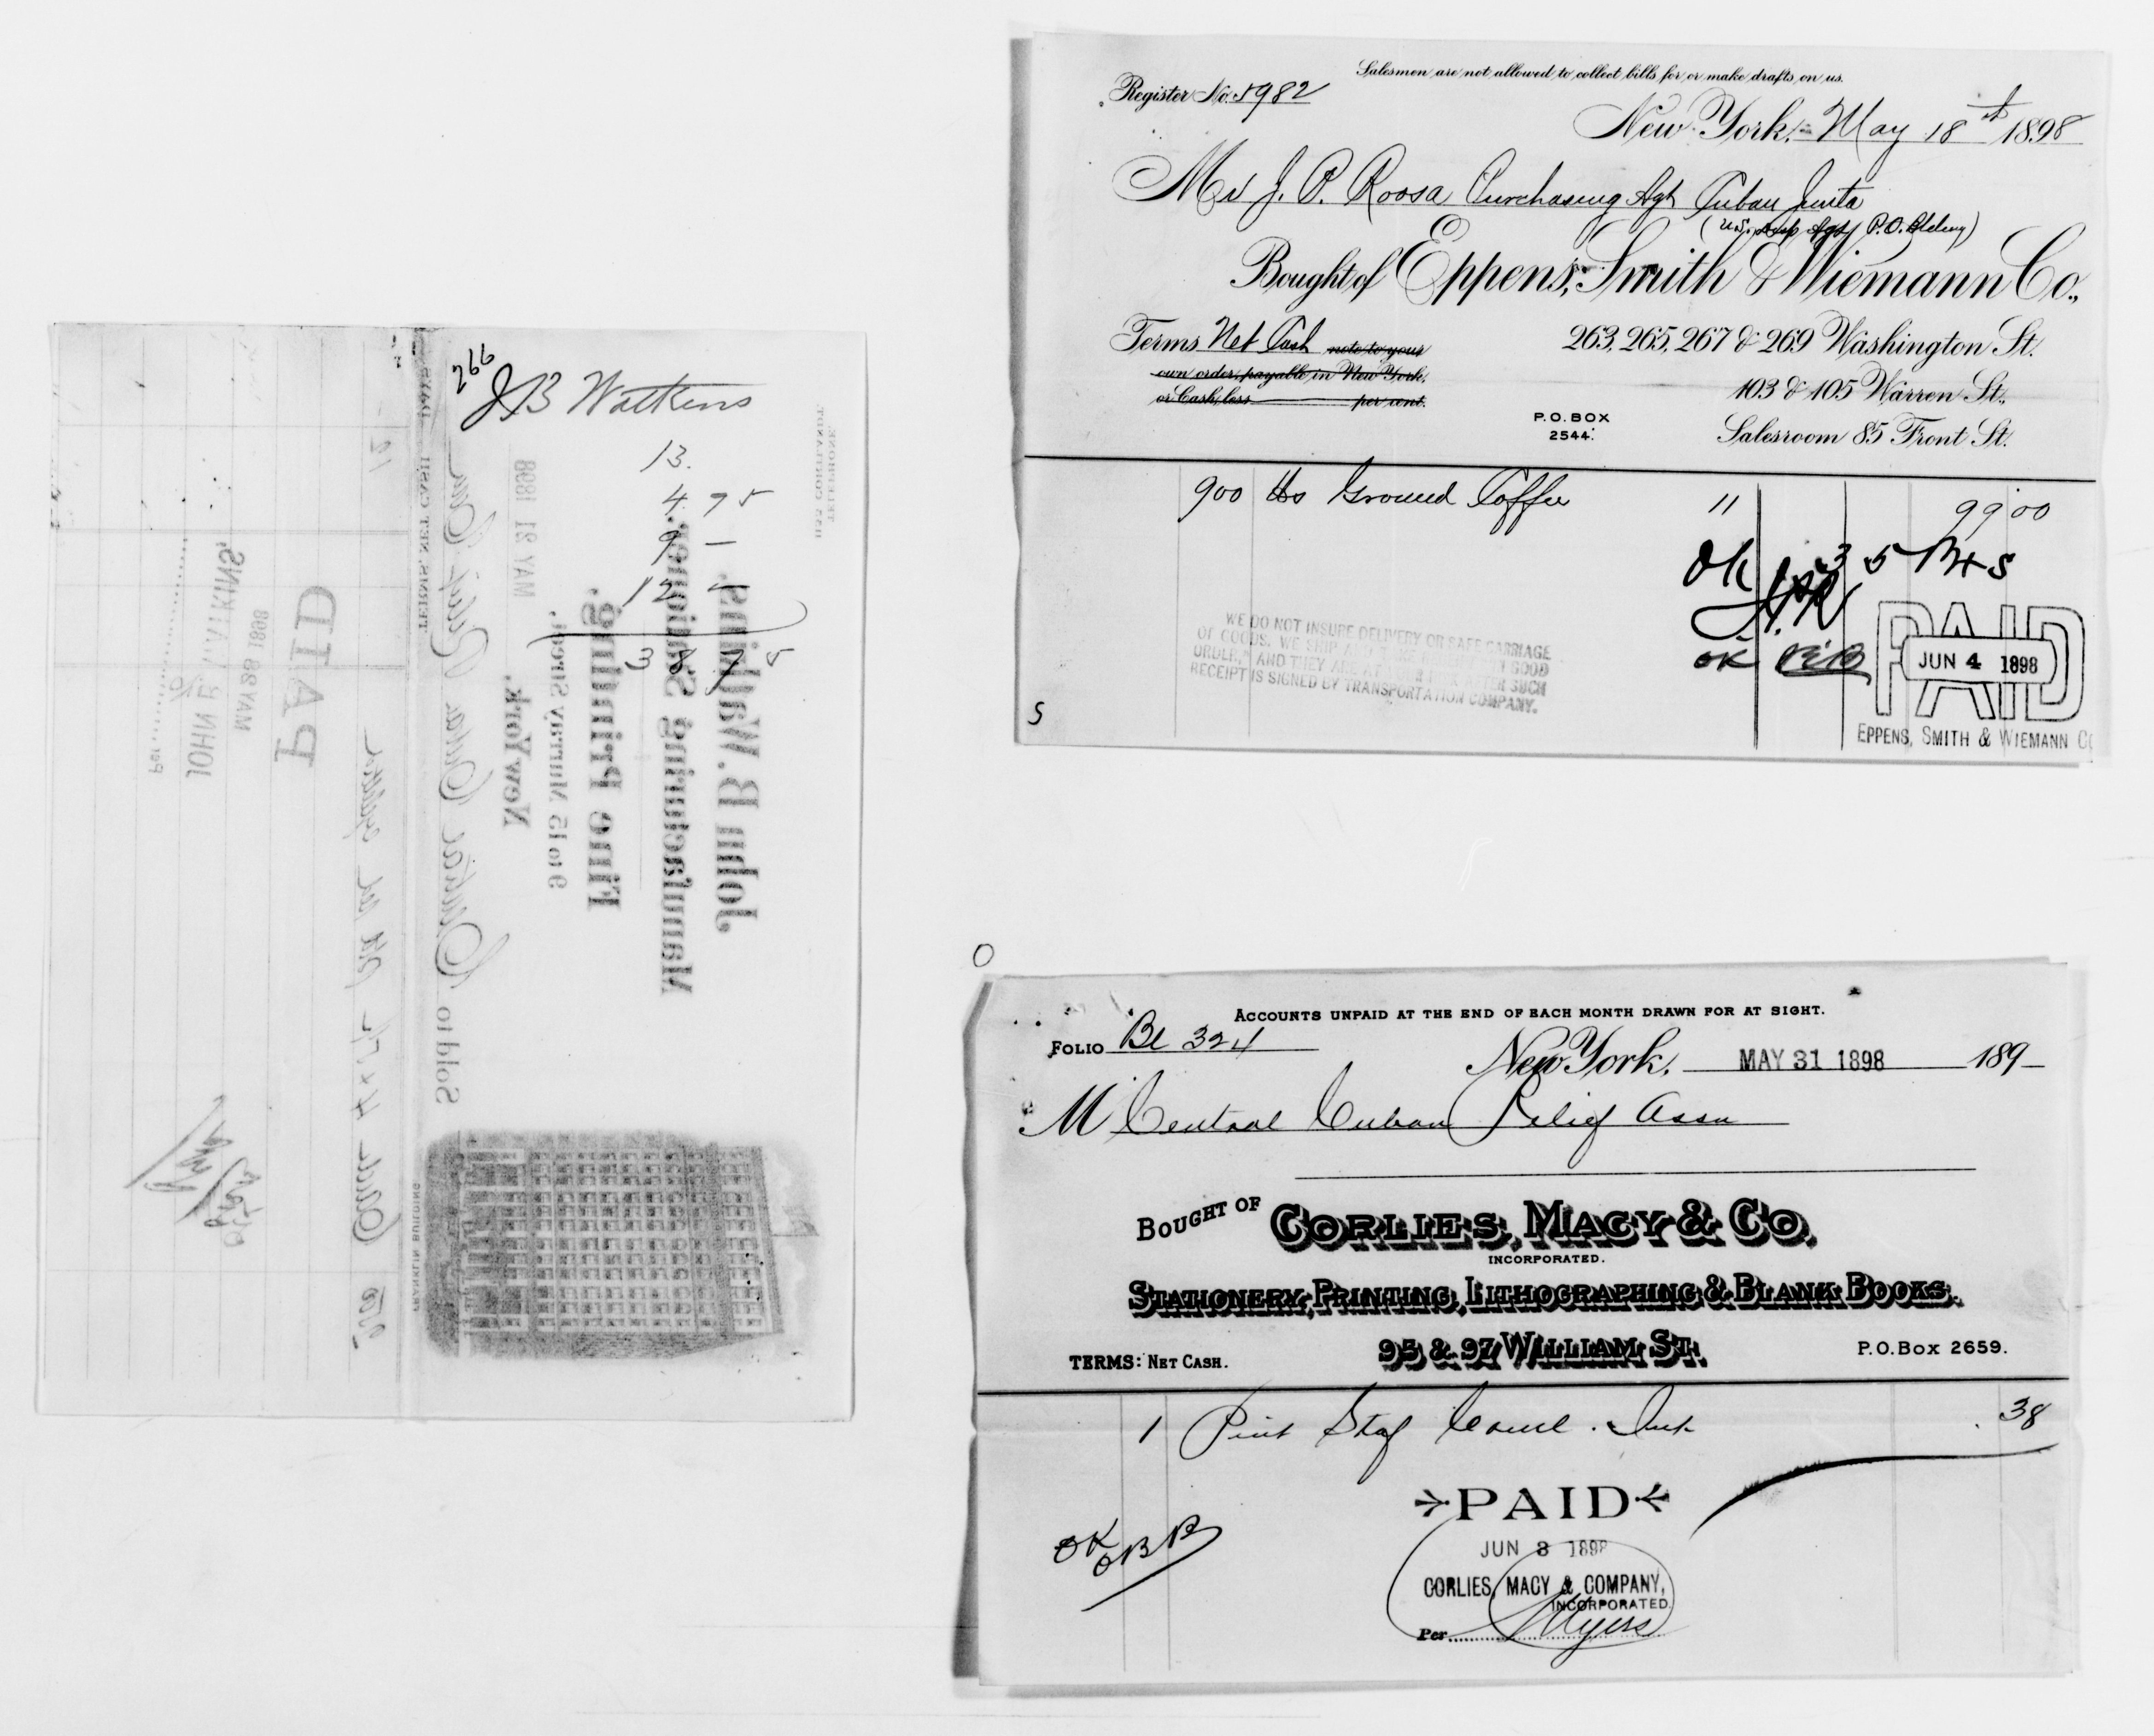 266
J B Watkins
13.
4 75
9 —
12 —
38 75
TELEPHONE.
1155 CORTLANDT.
John B. Watkins
Manufacturing Stationer.
Fine Printing.
9 to 15 Murray Street,
New York,
MAY 21 1898
Sold to
TERMS, NET CASH DAYS
FRANKLIN BUILDING
12
PAID
MAY 28 1898
JOHN B. WATKINS,
Per
Salesmen are not allowed to collect bills for or make drafts on us.
Register No. 1982
New York, May 18th 1898
Mr J. P. Roosa Purchasing Agt Cuban Junta
Bought of Eppens, Smith & Wiemann Co.,
Terms Net Cash note to your
own order, payable in New York,
or Cash, less per cent.
263, 265, 267 & 269 Washington St.
103 & 105 Warren St.,
P.O. BOX
2544.
Salesroom 85 Front St.
900 lbs Ground Coffee 11 99 00
Ok 35
J.P.R
OK
WE DO NOT INSURE DELIVERY OR SAFE CARRIAGE
OF GOODS. WE SHIP GOOD
ORDER, AND THEY ARE AT AFTER SUCH
RECEIPT IS SIGNED BY TRANSPORTATION COMPANY.
PAID
JUN 4 1898
EPPENS, SMITH & WIEMANN CO
S
ACCOUNTS UNPAID AT THE END OF EACH MONTH DRAWN FOR AT SIGHT.
FOLIO Bl 324
New York, MAY 31 1898 189
M Central Cuban Relief Assn
BOUGHT OF CORLIES, MACY & CO,
INCORPORATED.
STATIONERY, PRINTING, LITHOGRAPHING & BLANK BOOKS.
95 & 97 WILLIAM ST.
TERMS: NET CASH.
P.O. BOX 2659.
1 Pint Staf Coml. Ink . 38
PAID
JUN 3 1898
CORLIES, MACY & COMPANY,
INCORPORATED.
Per Myers
OK